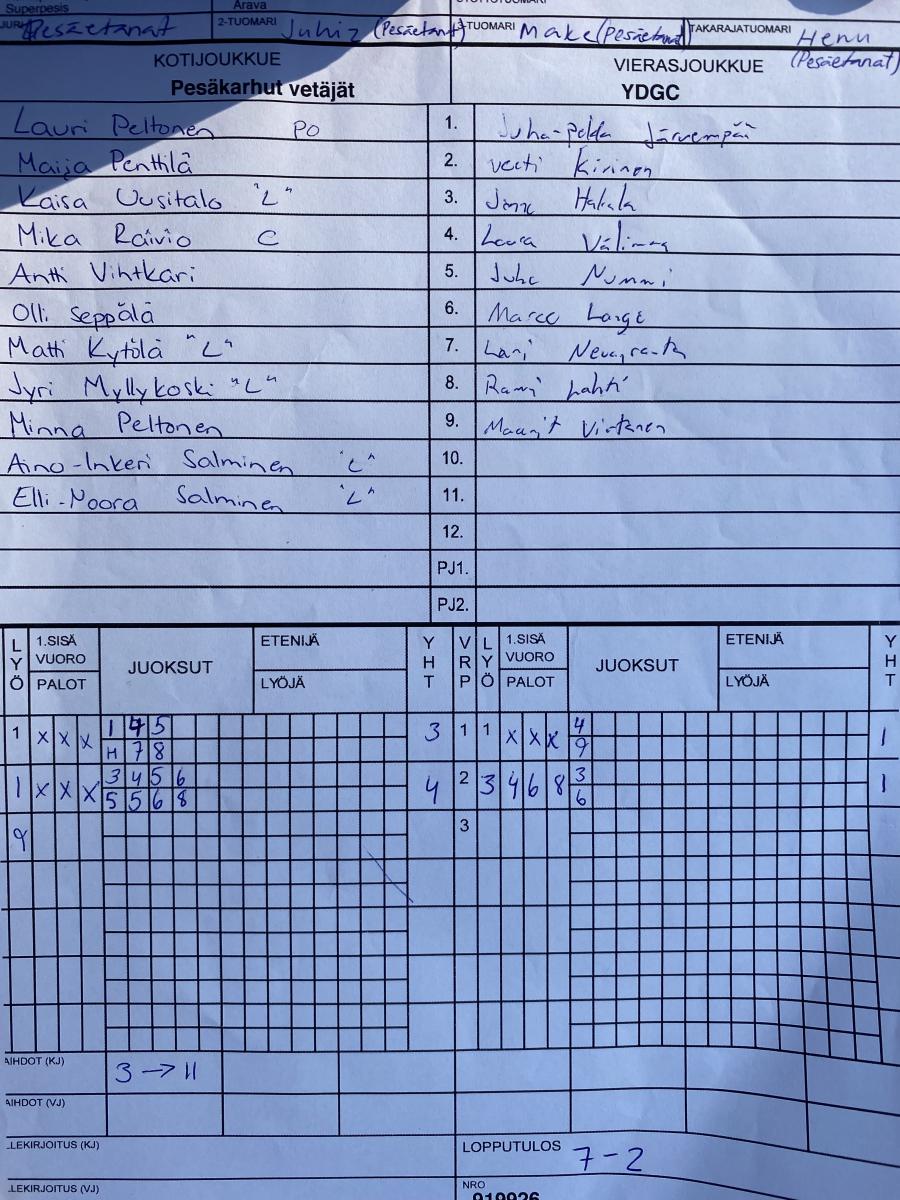 Superpesis Arava
Pesäetanat 2-TUOMARI Juhiz (Pesäetanat) 3-TUOMARI Make (Pesäetanat) TAKARAJATUOMARI Henu (Pesäetanat)
KOTIJOUKKUE VIERASJOUKKUE
Pesäkarhut vetäjät YDGC
Lauri Peltonen PO 1. Juha-pekka Järvempää
Maija Penttilä 2. Veeti Kirinen
Kaisa Uusitalo "L" 3. Hakala
Mika Raivio C 4. Laura Välimaa
Antti Vihtkari 5. Juha Nummi
Olli Seppälä 6. Marco Lange
Matti Kytölä "L" 7. Lari
Jyri Myllykoski "L" 8. Rami Lahti
Minna Peltonen 9. Maarit Virtanen
Aino-Inkeri Salminen "L" 10.
Elli-Noora Salminen "L" 11.
12.
PJ1.
PJ2.
LYÖ 1.SISÄ VUORO PALOT JUOKSUT ETENIJÄ LYÖJÄ YHT VRP LYÖ 1.SISÄ VUORO PALOT JUOKSUT ETENIJÄ LYÖJÄ YHT
1 x x x 1 4 5 3 1 1 x x x 4 1
H 7 8 9
1 x x x 3 4 5 6 4 2 3 4 6 8 3 1
5 5 6 8 6
9 3
AIHDOT (KJ) 3 → 11
AIHDOT (VJ)
LEKIRJOITUS (KJ) LOPPUTULOS 7-2
LEKIRJOITUS (VJ) NRO
919926